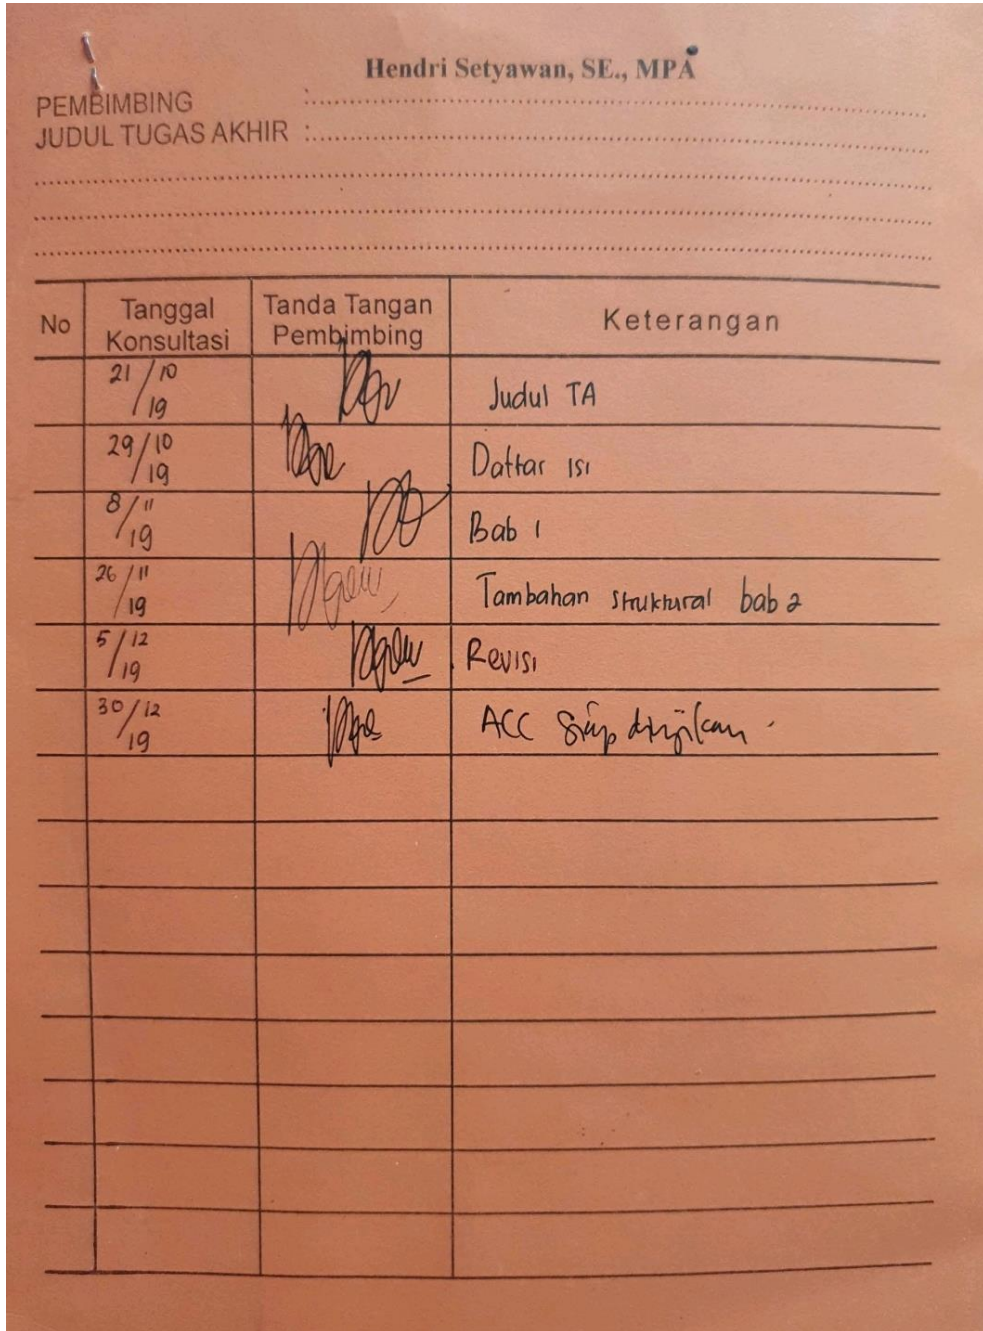 Hendri Setyawan, SE., MPA
PEMBIMBING :
JUDUL TUGAS AKHIR :
No Tanggal Konsultasi Tanda Tangan Pembimbing Keterangan
21/10/19 Judul TA
29/10/19 Daftar isi
8/11/19 Bab 1
26/11/19 Tambahan struktural bab 2
5/12/19 Revisi
30/12/19 ACC Siap diujikan